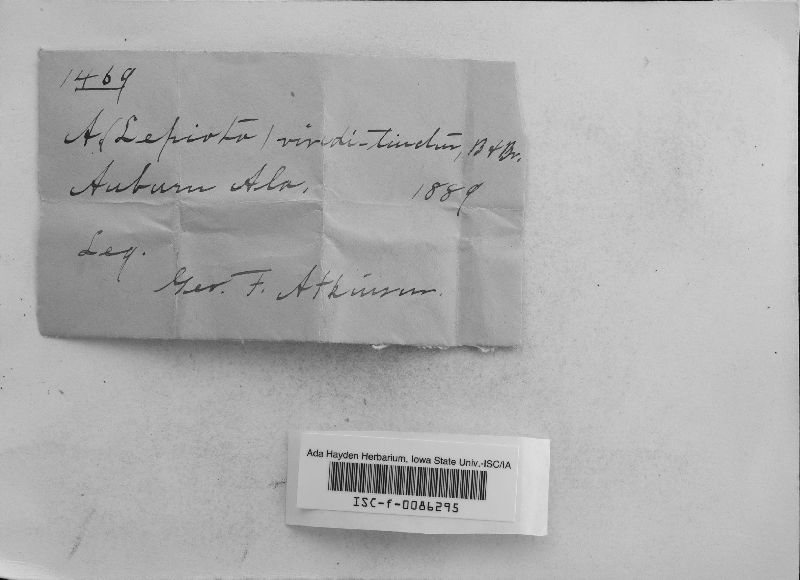 1469
A. (Lepiota) viridi-tinctus, B & Br.
Auburn Ala. 1889
Leg.
Geo. F. Atkinson.
Ada Hayden Herbarium, Iowa State Univ.-ISC/IA
ISC-f-0086295